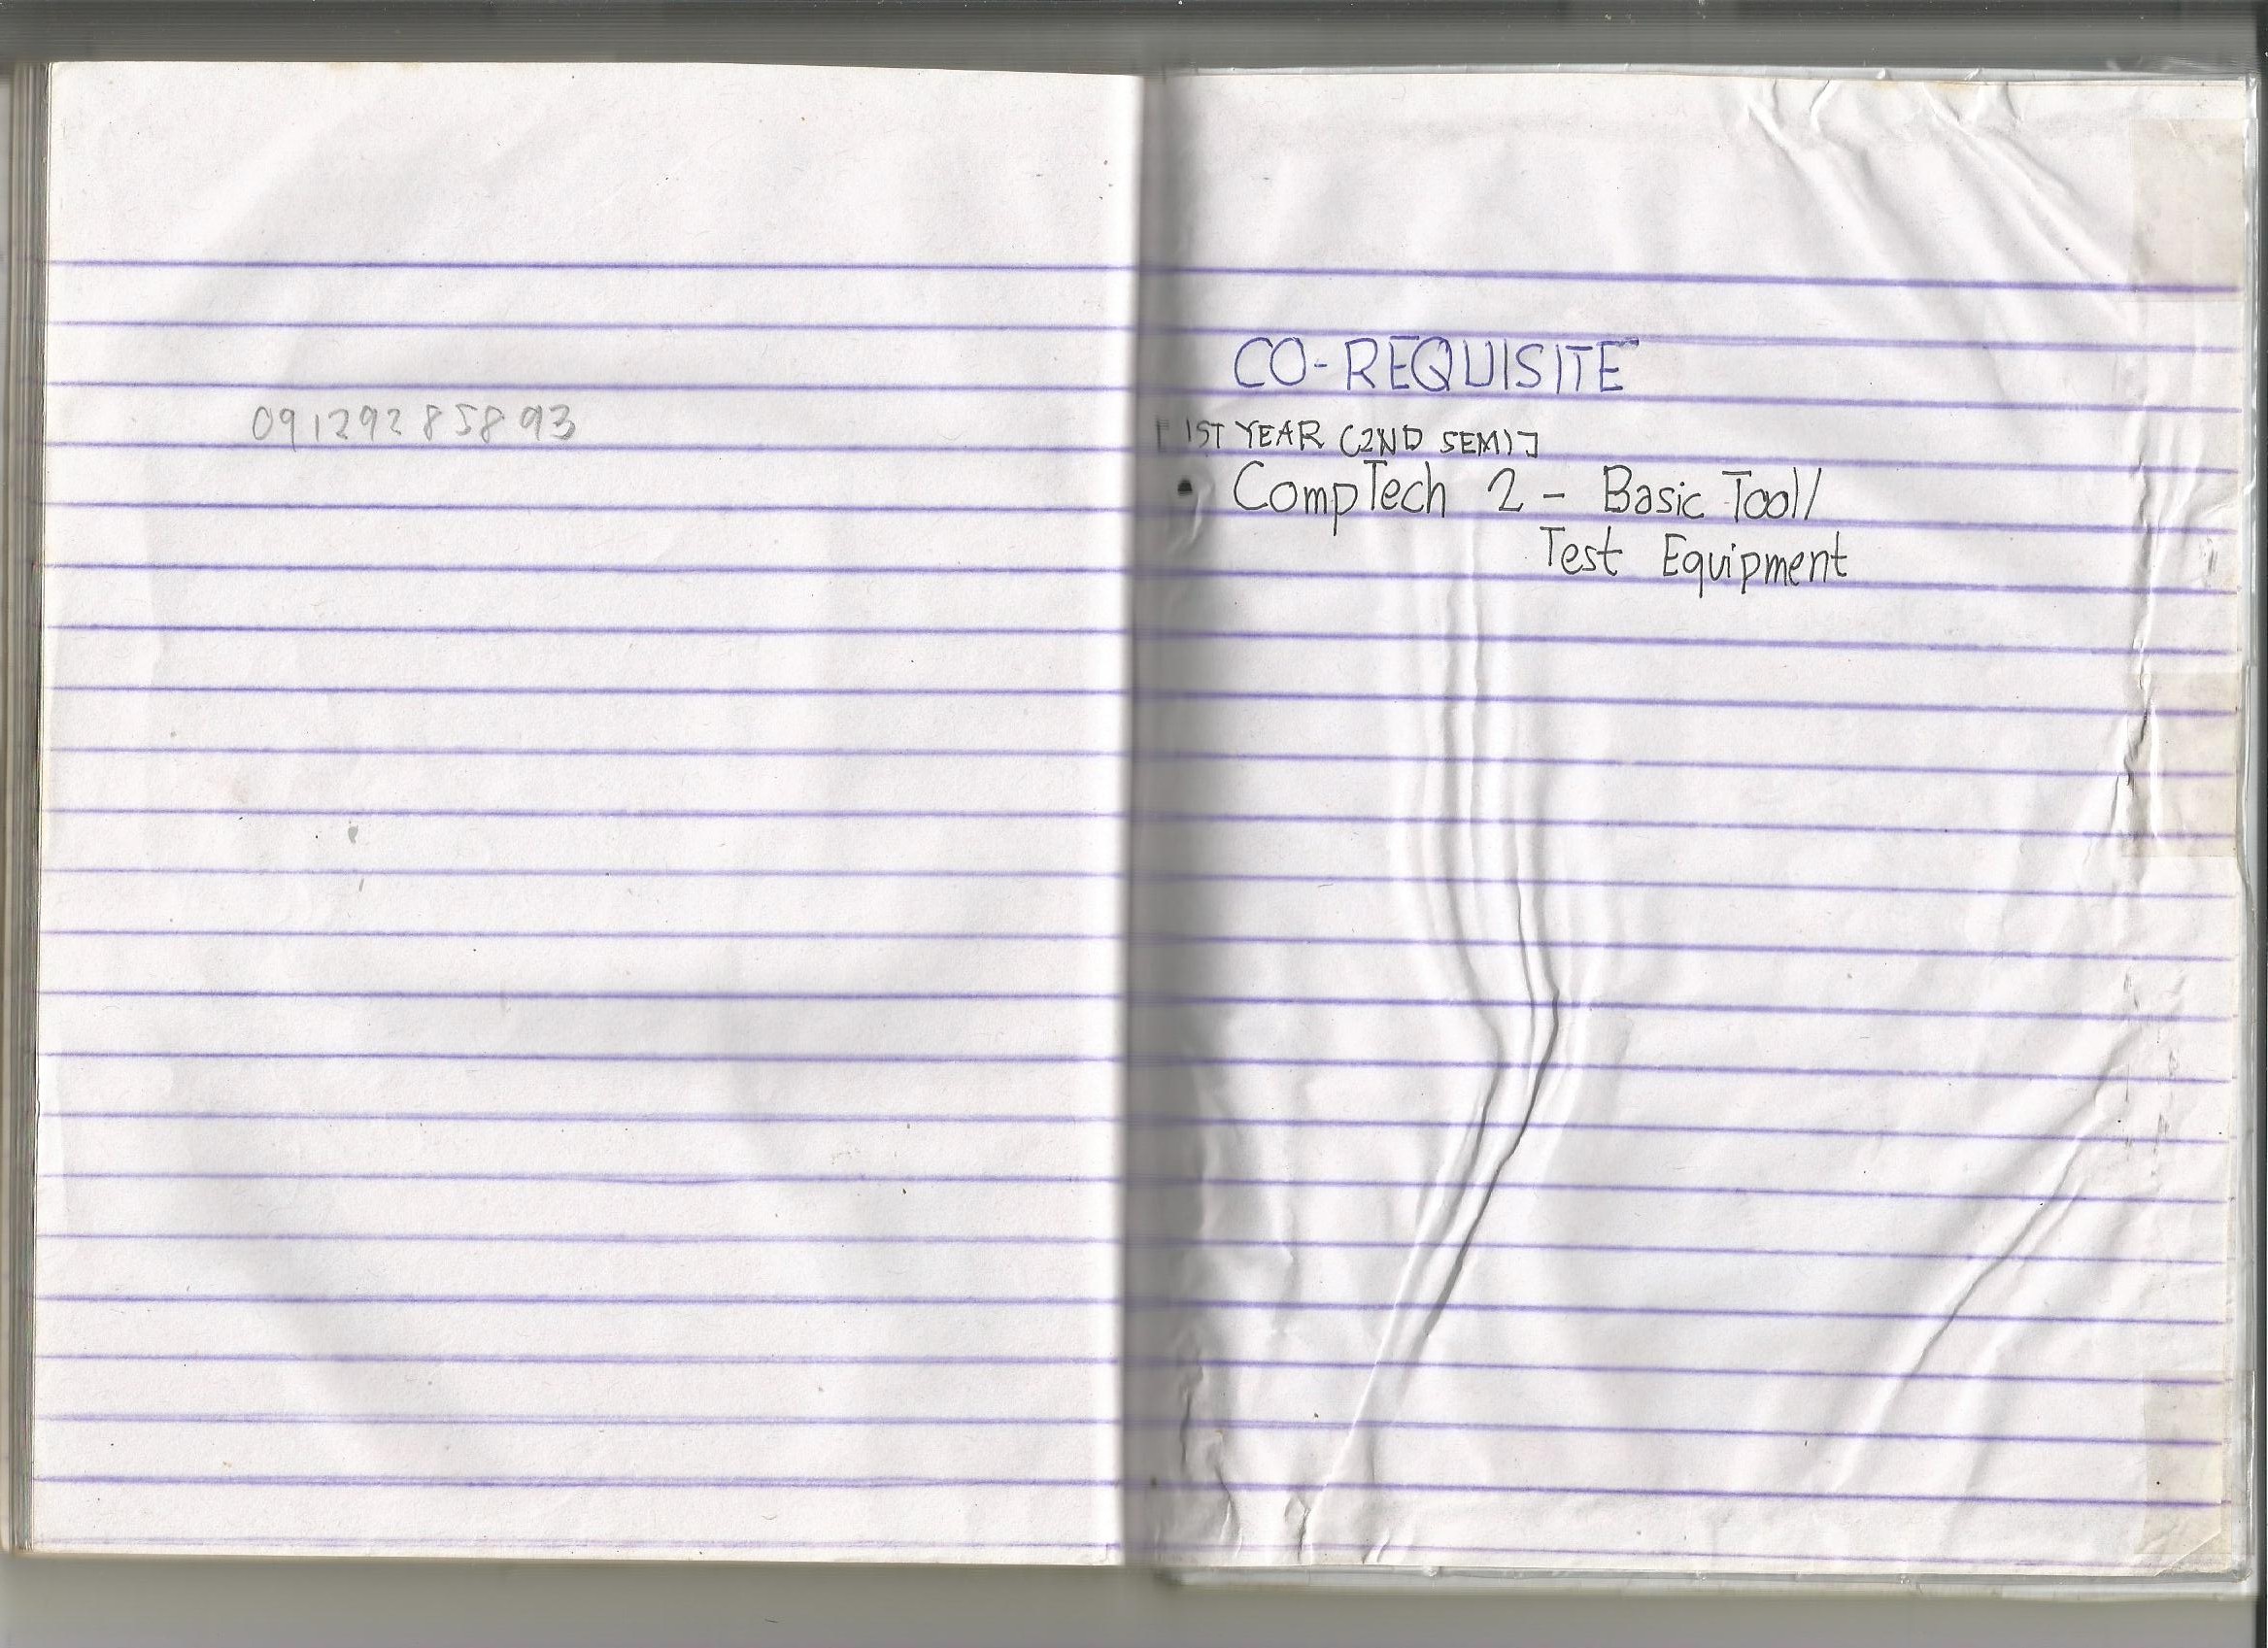 09129285893
CO-REQUISITE
[1ST YEAR (2ND SEM)]
• CompTech 2 - Basic Tool/
Test Equipment